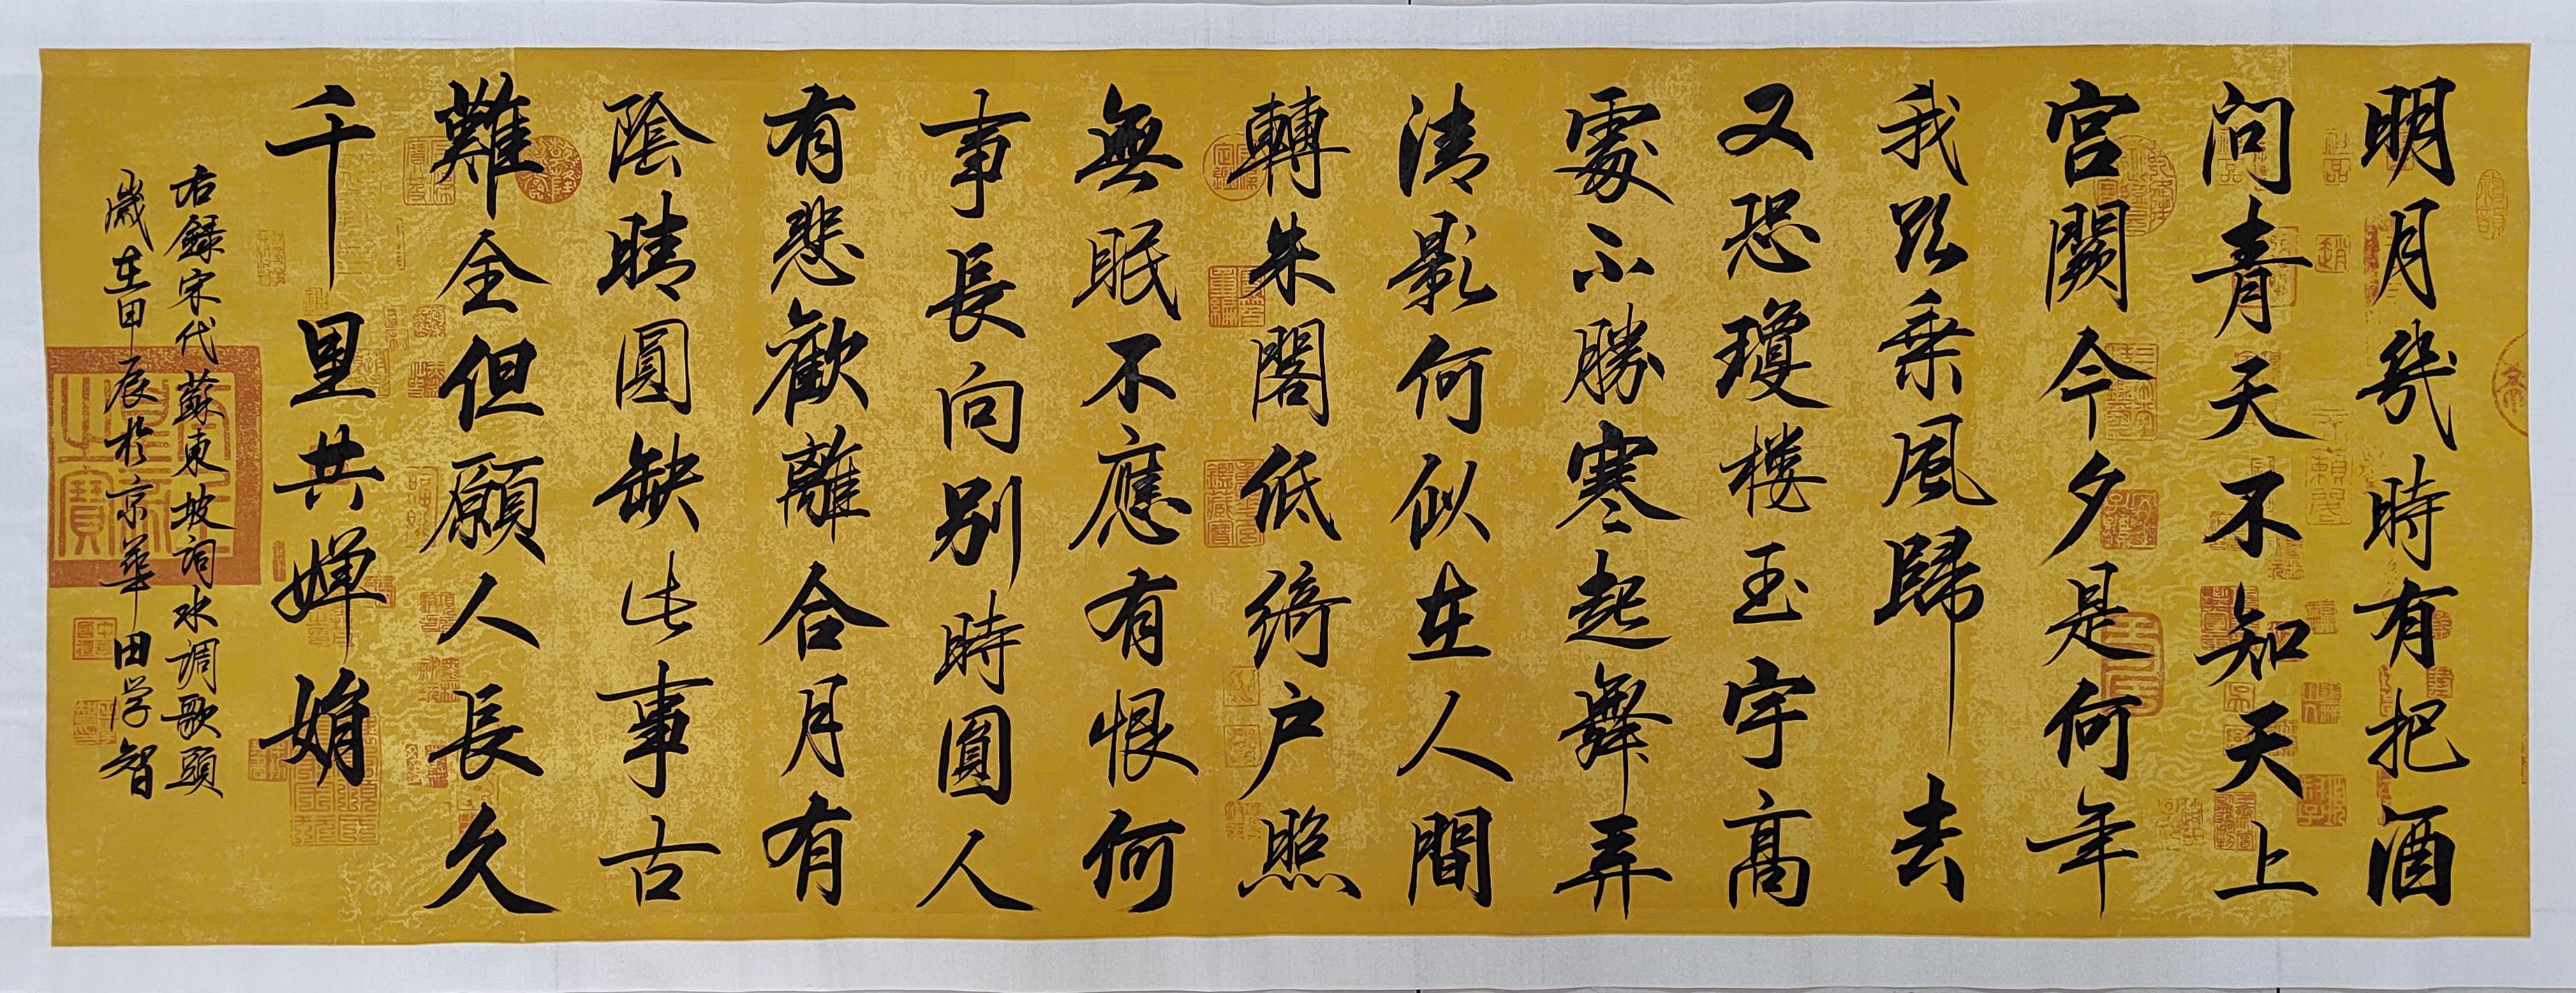 明月幾時有把酒
問青天不知天上
宫闕今夕是何年
我欲乘風歸去
又恐瓊樓玉宇高
處不勝寒起舞弄
清影何似在人間
轉朱閣低綺户照
無眠不應有恨何
事長向别時圓人
有悲歡離合月有
陰晴圓缺此事古
難全但願人長久
千里共嬋娟
右録宋代蘇東坡詞水調歌頭
歲在甲辰於京華田学智